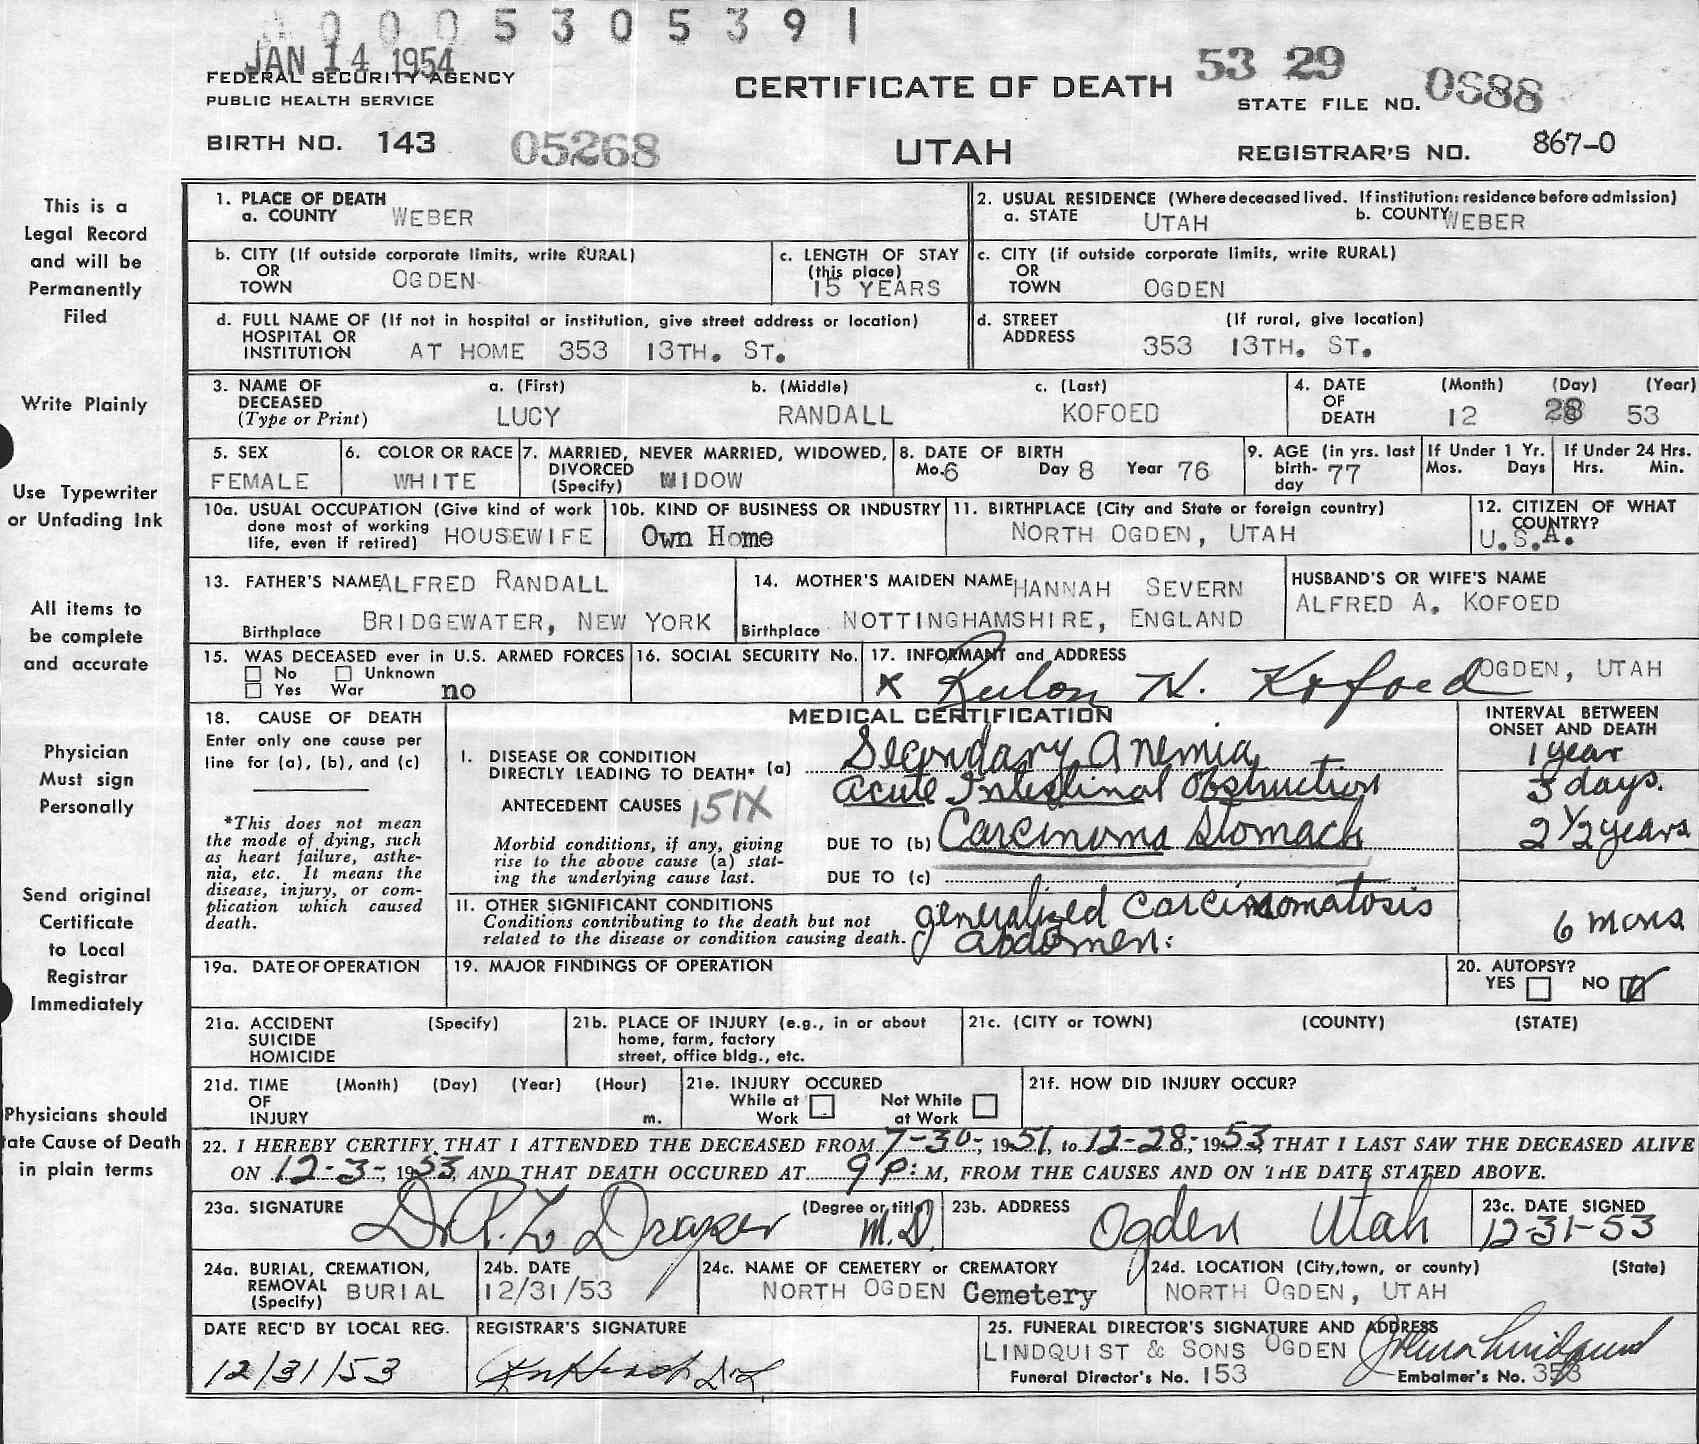 0005305391
JAN 14 1954
FEDERAL SECURITY AGENCY
PUBLIC HEALTH SERVICE
CERTIFICATE OF DEATH
53 29
STATE FILE NO. 0688
BIRTH NO. 143 05268
UTAH
REGISTRAR'S NO. 867-0
This is a
Legal Record
and will be
Permanently
Filed
Write Plainly
Use Typewriter
or Unfading Ink
All items to
be complete
and accurate
Physician
Must sign
Personally
Send original
Certificate
to Local
Registrar
Immediately
Physicians should
tate Cause of Death
in plain terms
1. PLACE OF DEATH
a. COUNTY WEBER
2. USUAL RESIDENCE (Where deceased lived. If institution: residence before admission)
a. STATE UTAH b. COUNTY WEBER
b. CITY (If outside corporate limits, write RURAL)
OR
TOWN OGDEN
c. LENGTH OF STAY
(this place)
15 YEARS
c. CITY (if outside corporate limits, write RURAL)
OR
TOWN OGDEN
d. FULL NAME OF (If not in hospital or institution, give street address or location)
HOSPITAL OR
INSTITUTION AT HOME 353 13TH. ST.
d. STREET (If rural, give location)
ADDRESS 353 13TH. ST.
3. NAME OF DECEASED (Type or Print)
a. (First) b. (Middle) c. (Last)
LUCY RANDALL KOFOED
4. DATE OF DEATH (Month) (Day) (Year)
12 28 53
5. SEX
FEMALE
6. COLOR OR RACE
WHITE
7. MARRIED, NEVER MARRIED, WIDOWED,
DIVORCED
(Specify) WIDOW
8. DATE OF BIRTH
Mo. 6 Day 8 Year 76
9. AGE (in yrs. last
birth-
day 77
If Under 1 Yr.
Mos. Days
If Under 24 Hrs.
Hrs. Min.
10a. USUAL OCCUPATION (Give kind of work
done most of working
life, even if retired) HOUSEWIFE
10b. KIND OF BUSINESS OR INDUSTRY
Own Home
11. BIRTHPLACE (City and State or foreign country)
NORTH OGDEN, UTAH
12. CITIZEN OF WHAT
COUNTRY?
U.S.A.
13. FATHER'S NAME ALFRED RANDALL
Birthplace BRIDGEWATER, NEW YORK
14. MOTHER'S MAIDEN NAME HANNAH SEVERN
Birthplace NOTTINGHAMSHIRE, ENGLAND
HUSBAND'S OR WIFE'S NAME
ALFRED A. KOFOED
15. WAS DECEASED ever in U.S. ARMED FORCES
No Unknown
Yes War no
16. SOCIAL SECURITY No.
17. INFORMANT and ADDRESS
x Rulon N. Kofoed OGDEN, UTAH
18. CAUSE OF DEATH
Enter only one cause per
line for (a), (b), and (c)
*This does not mean
the mode of dying, such
as heart failure, asthe-
nia, etc. It means the
disease, injury, or com-
plication which caused
death.
MEDICAL CERTIFICATION
INTERVAL BETWEEN
ONSET AND DEATH
I. DISEASE OR CONDITION
DIRECTLY LEADING TO DEATH* (a) Secondary Anemia 1 year
Acute Intestinal Obstruction 3 days.
ANTECEDENT CAUSES 151X
Morbid conditions, if any, giving
rise to the above cause (a) stat-
ing the underlying cause last.
DUE TO (b) Carcinoma Stomach 2 1/2 years
DUE TO (c)
II. OTHER SIGNIFICANT CONDITIONS
Conditions contributing to the death but not
related to the disease or condition causing death.
generalized carcinomatosis
abdomen: 6 mons
19a. DATE OF OPERATION
19. MAJOR FINDINGS OF OPERATION
20. AUTOPSY?
YES NO
21a. ACCIDENT (Specify)
SUICIDE
HOMICIDE
21b. PLACE OF INJURY (e.g., in or about
home, farm, factory
street, office bldg., etc.
21c. (CITY or TOWN) (COUNTY) (STATE)
21d. TIME (Month) (Day) (Year) (Hour)
OF
INJURY m.
21e. INJURY OCCURED
While at Work Not While at Work
21f. HOW DID INJURY OCCUR?
22. I HEREBY CERTIFY THAT I ATTENDED THE DECEASED FROM 7-30-, 1951, to 12-28-, 1953, THAT I LAST SAW THE DECEASED ALIVE
ON 12-3-, 1953, AND THAT DEATH OCCURED AT 9 P. M, FROM THE CAUSES AND ON THE DATE STATED ABOVE.
23a. SIGNATURE (Degree or title)
Dr. R. Z. Draper M.D.
23b. ADDRESS
Ogden Utah
23c. DATE SIGNED
12-31-53
24a. BURIAL, CREMATION,
REMOVAL
(Specify) BURIAL
24b. DATE
12/31/53
24c. NAME OF CEMETERY or CREMATORY
NORTH OGDEN Cemetery
24d. LOCATION (City, town, or county) (State)
NORTH OGDEN, UTAH
DATE REC'D BY LOCAL REG.
12/31/53
REGISTRAR'S SIGNATURE
25. FUNERAL DIRECTOR'S SIGNATURE AND ADDRESS
LINDQUIST & SONS OGDEN
Funeral Director's No. 153
Embalmer's No. 353